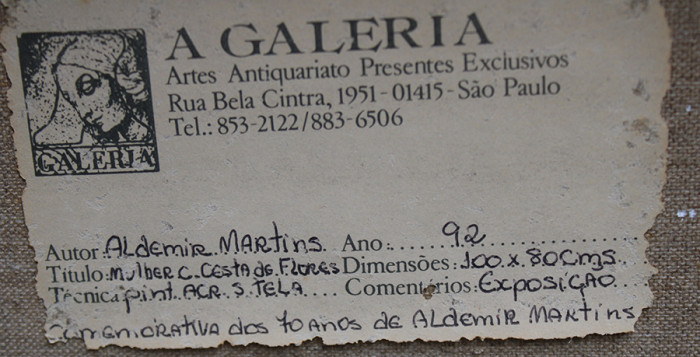 A GALERIA
Artes Antiquariato Presentes Exclusivos
Rua Bela Cintra, 1951 - 01415 - São Paulo
Tel.: 853-2122/883-6506
GALERIA
Autor: ALDEMIR MARTINS. Ano:..... 92
Título: MULHER C. CESTA de FLORES Dimensões: 100 x 80cms
Técnica: pint. ACR. S. TELA.... Comentários: EXPOSIÇÃO
COMEMORATIVA dos 70 ANOS de ALDEMIR MARTINS